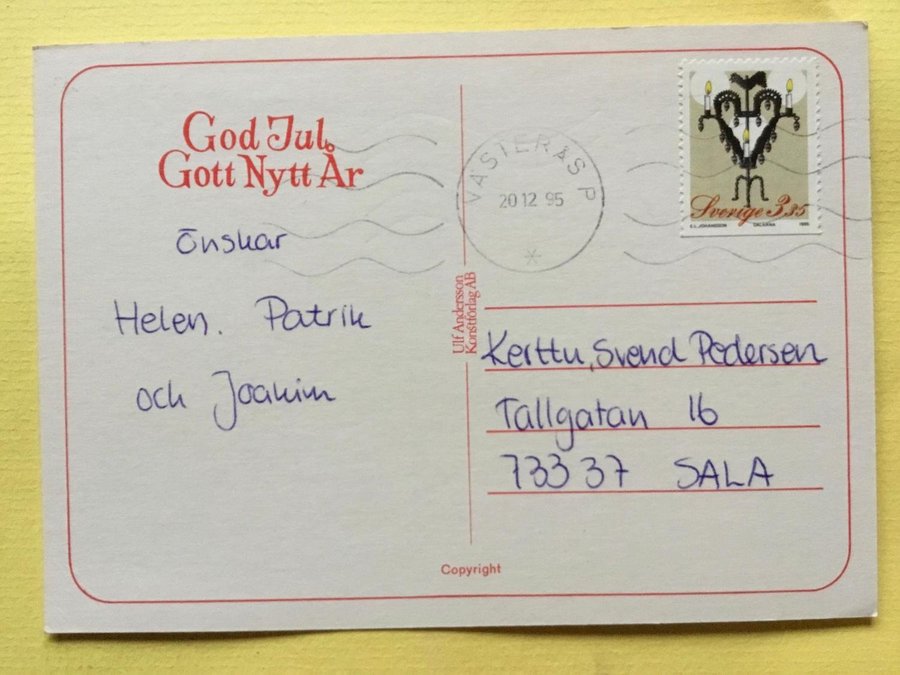 God Jul
Gott Nytt År
önskar
Helen. Patrik
och Joakim
Ulf Andersson
Konstförlag AB
VÄSTERÅS P
20 12 95
Sverige 3,85
E.L. JOHANSSON DALARNA 1995
Kerttu, Svend Pedersen
Tallgatan 16
733 37 SALA
Copyright